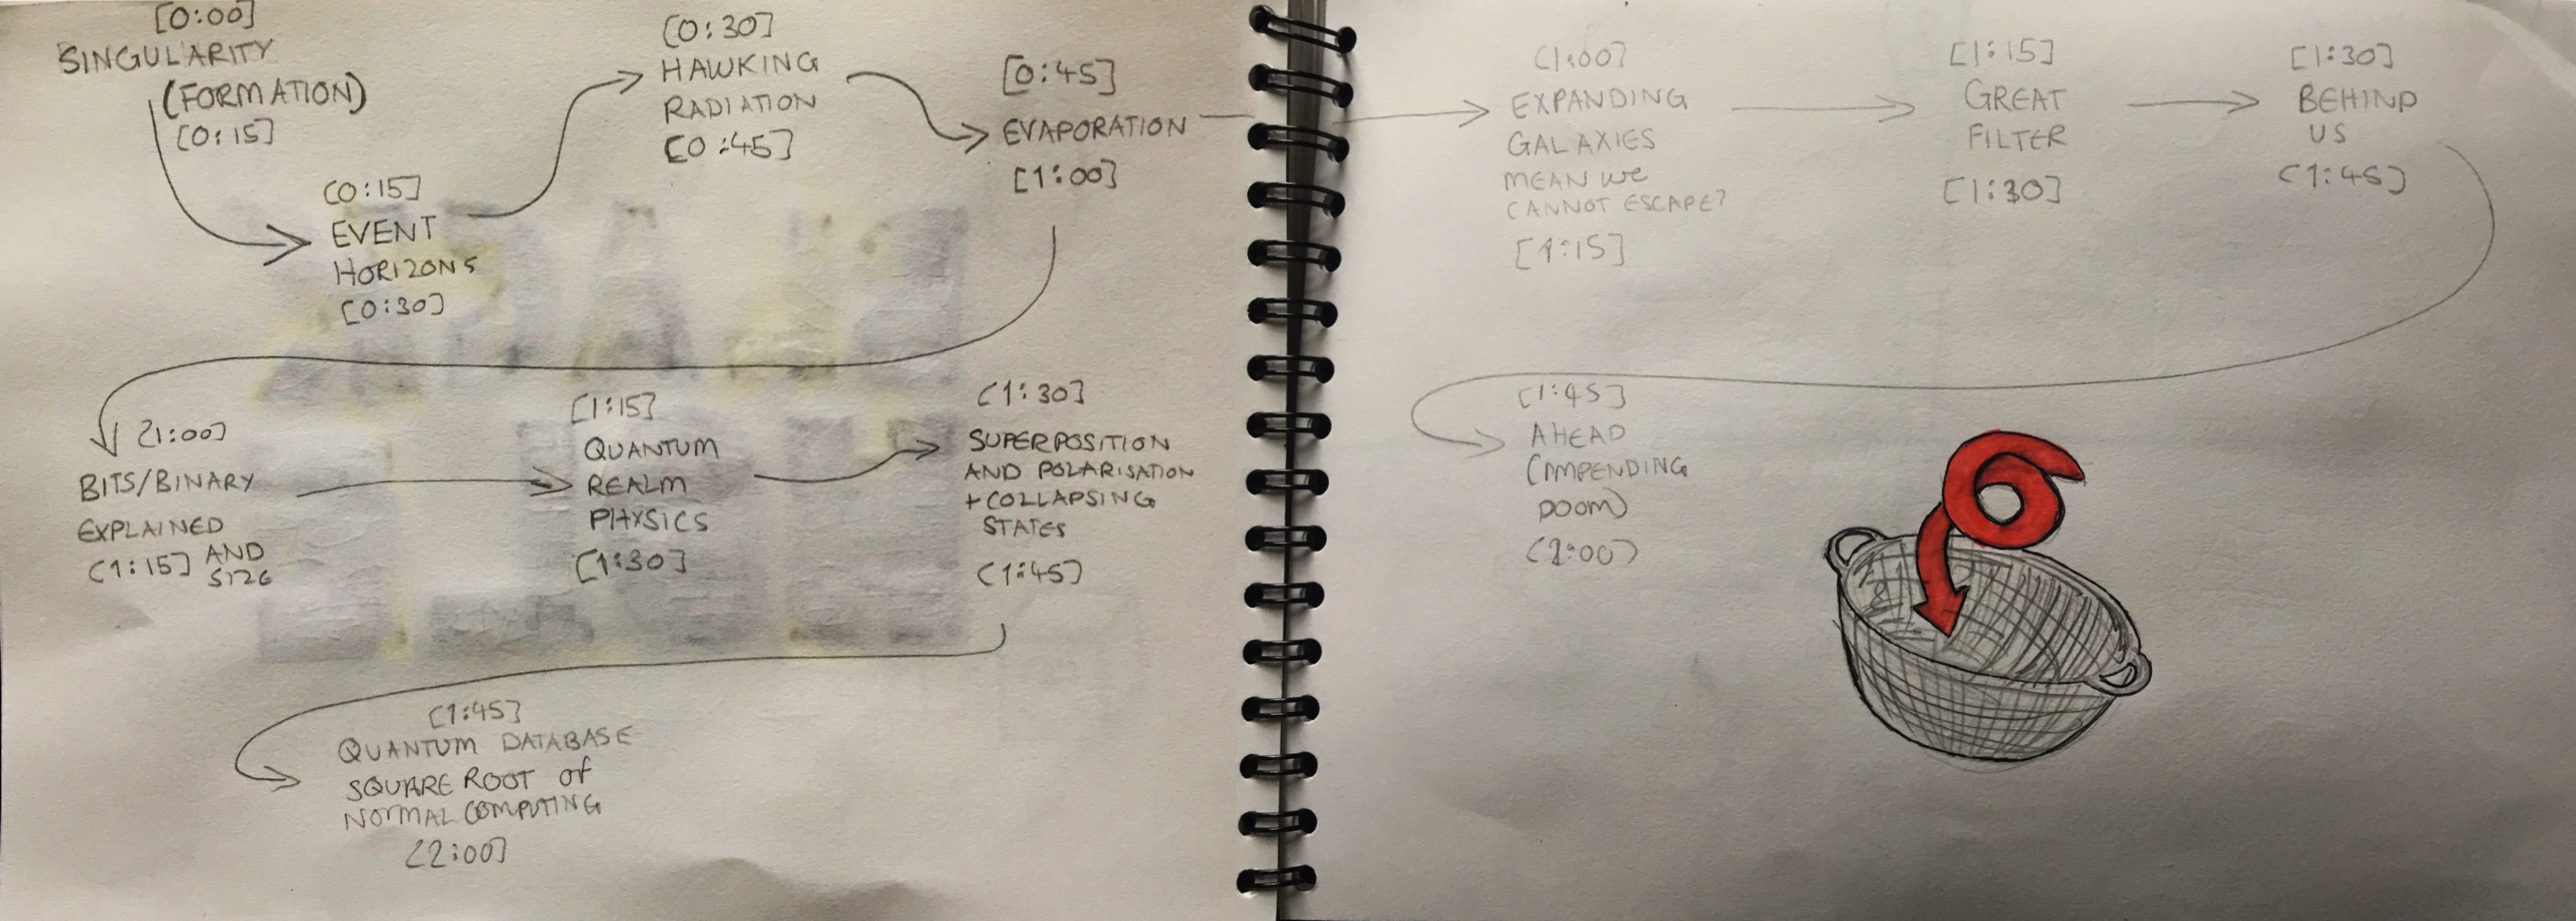 [0:00]
SINGULARITY
(FORMATION)
[0:15]
[0:15]
EVENT
HORIZONS
[0:30]
[0:30]
HAWKING
RADIATION
[0:45]
[0:45]
EVAPORATION
[1:00]
[1:00]
BITS/BINARY
EXPLAINED
[1:15] AND
SIZE
[1:15]
QUANTUM
REALM
PHYSICS
[1:30]
[1:30]
SUPERPOSITION
AND POLARISATION
+ COLLAPSING
STATES
[1:45]
[1:45]
QUANTUM DATABASE
SQUARE ROOT OF
NORMAL COMPUTING
[2:00]
[1:00]
EXPANDING
GALAXIES
MEAN WE
CANNOT ESCAPE?
[1:15]
[1:15]
GREAT
FILTER
[1:30]
[1:30]
BEHIND
US
[1:45]
[1:45]
AHEAD
(IMPENDING
DOOM)
[2:00]